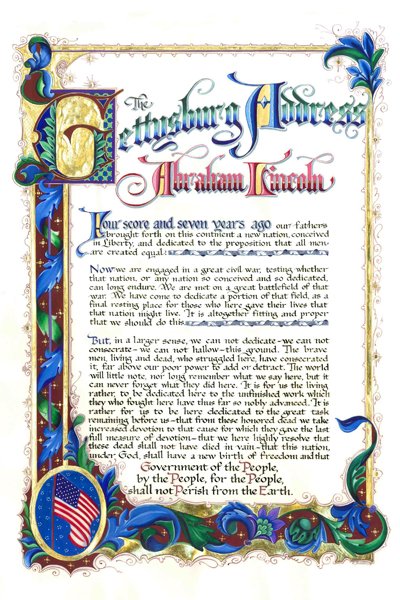 The
Gettysburg Address
Abraham Lincoln
Four score and seven years ago our fathers
brought forth on this continent a new nation, conceived
in Liberty, and dedicated to the proposition that all men
are created equal.
Now we are engaged in a great civil war, testing whether
that nation, or any nation so conceived and so dedicated,
can long endure. We are met on a great battlefield of that
war. We have come to dedicate a portion of that field, as a
final resting place for those who here gave their lives that
that nation might live. It is altogether fitting and proper
that we should do this.
But, in a larger sense, we can not dedicate-we can not
consecrate-we can not hallow-this ground. The brave
men, living and dead, who struggled here, have consecrated
it, far above our poor power to add or detract. The world
will little note, nor long remember what we say here, but it
can never forget what they did here. It is for us the living
rather, to be dedicated here to the unfinished work which
they who fought here have thus far so nobly advanced. It is
rather for us to be here dedicated to the great task
remaining before us-that from these honored dead we take
increased devotion to that cause for which they gave the last
full measure of devotion-that we here highly resolve that
these dead shall not have died in vain-that this nation,
under God, shall have a new birth of freedom and that
Government of the People,
by the People, for the People,
shall not Perish from the Earth.